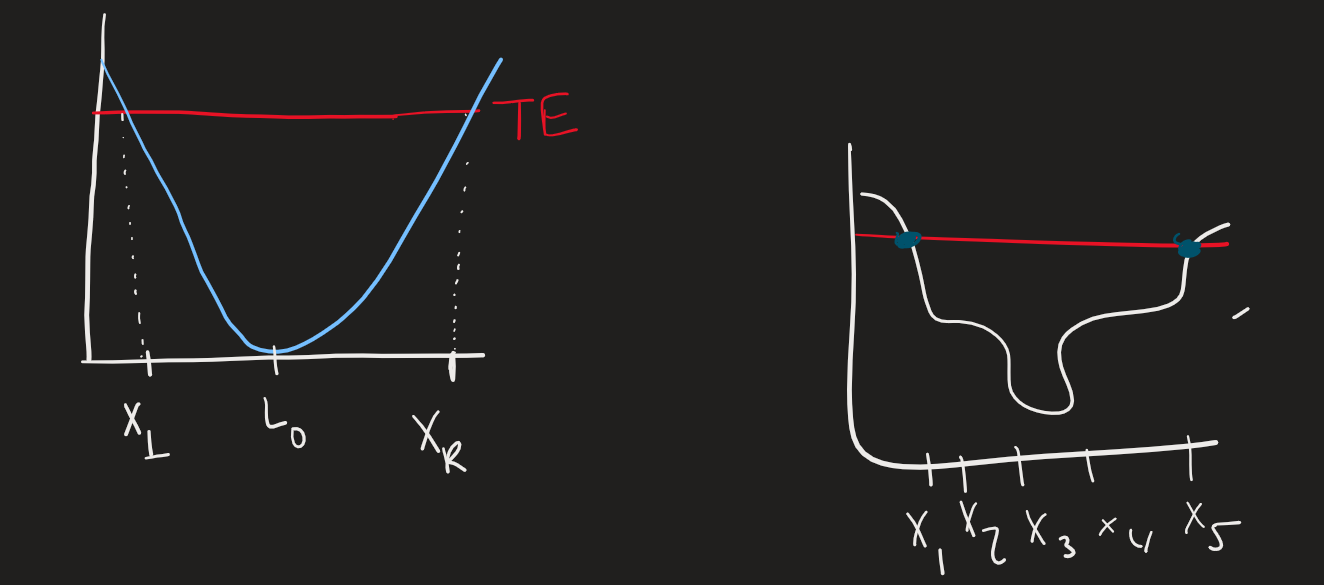 TE
X_L L_0 X_R
X_1 X_2 X_3 x_4 X_5